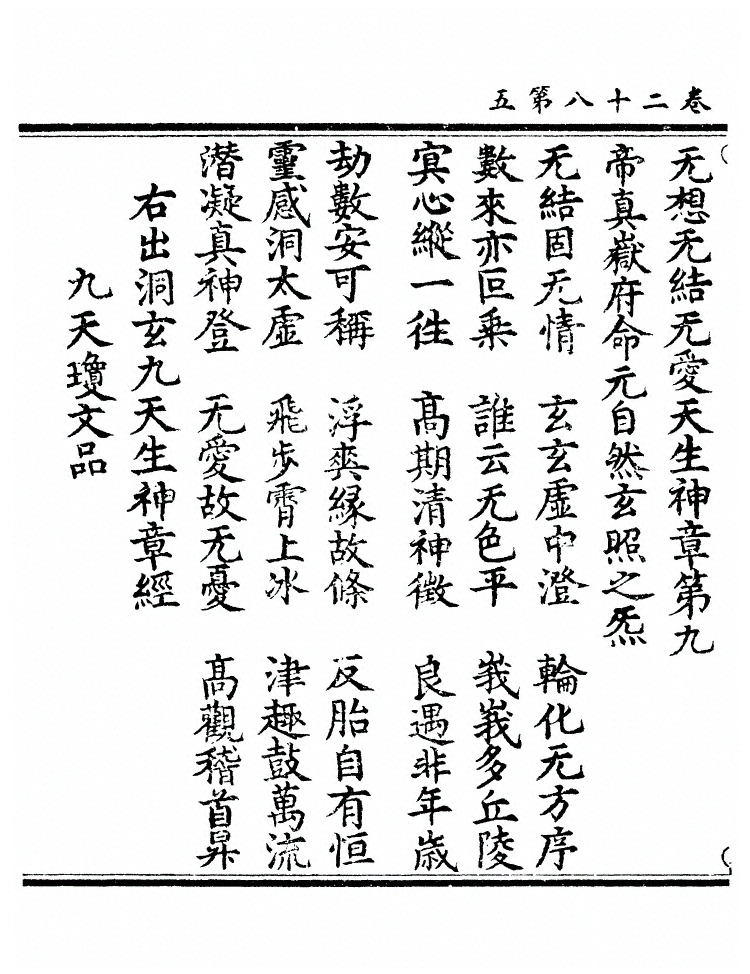 卷二十八第五
无想无結无愛天生神章第九
帝真嶽府命元自然玄照之炁
无結固无情　玄玄虛中澄　輪化无方序
數來亦叵乘　誰云无色平　峩峩多丘陵
寘心縱一往　高期清神徵　良遇非年歲
劫數安可稱　浮爽緣故條　反胎自有恒
靈感洞太虛　飛步霄上冰　津趣鼓萬流
潜凝真神登　无愛故无憂　高觀稽首昇
右出洞玄九天生神章經
九天瓊文品